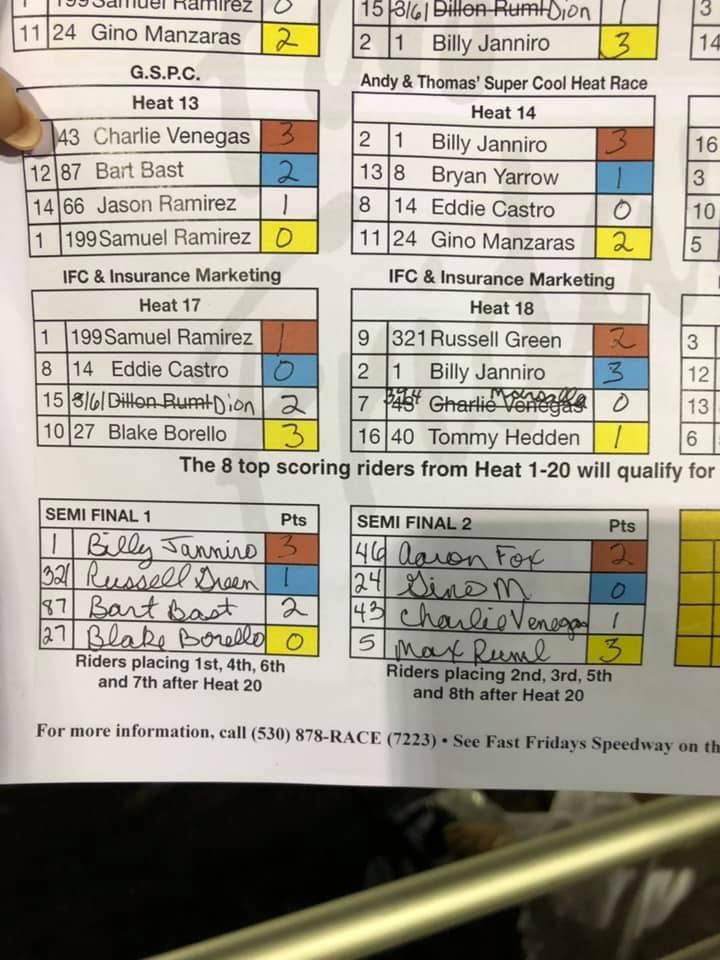 199 Samuel Ramirez 0
11 24 Gino Manzaras 2
15 3161 Dillon Ruml Dion 1
2 1 Billy Janniro 3
3
14
G.S.P.C.
Heat 13
43 Charlie Venegas 3
12 87 Bart Bast 2
14 66 Jason Ramirez 1
1 199 Samuel Ramirez 0
Andy & Thomas' Super Cool Heat Race
Heat 14
2 1 Billy Janniro 3
13 8 Bryan Yarrow 1
8 14 Eddie Castro 0
11 24 Gino Manzaras 2
16
3
10
5
IFC & Insurance Marketing
Heat 17
1 199 Samuel Ramirez 1
8 14 Eddie Castro 0
15 3161 Dillon Ruml Dion 2
10 27 Blake Borello 3
IFC & Insurance Marketing
Heat 18
9 321 Russell Green 2
2 1 Billy Janniro 3
7 Charlie Venegas 0
16 40 Tommy Hedden 1
3
12
13
6
The 8 top scoring riders from Heat 1-20 will qualify for
SEMI FINAL 1 Pts
1 Billy Janniro 3
321 Russell Green 1
87 Bart Bast 2
27 Blake Borello 0
Riders placing 1st, 4th, 6th
and 7th after Heat 20
SEMI FINAL 2 Pts
46 Aaron Fox 2
24 Gino M 0
43 Charlie Venegas 1
5 Max Ruml 3
Riders placing 2nd, 3rd, 5th
and 8th after Heat 20
For more information, call (530) 878-RACE (7223) • See Fast Fridays Speedway on th